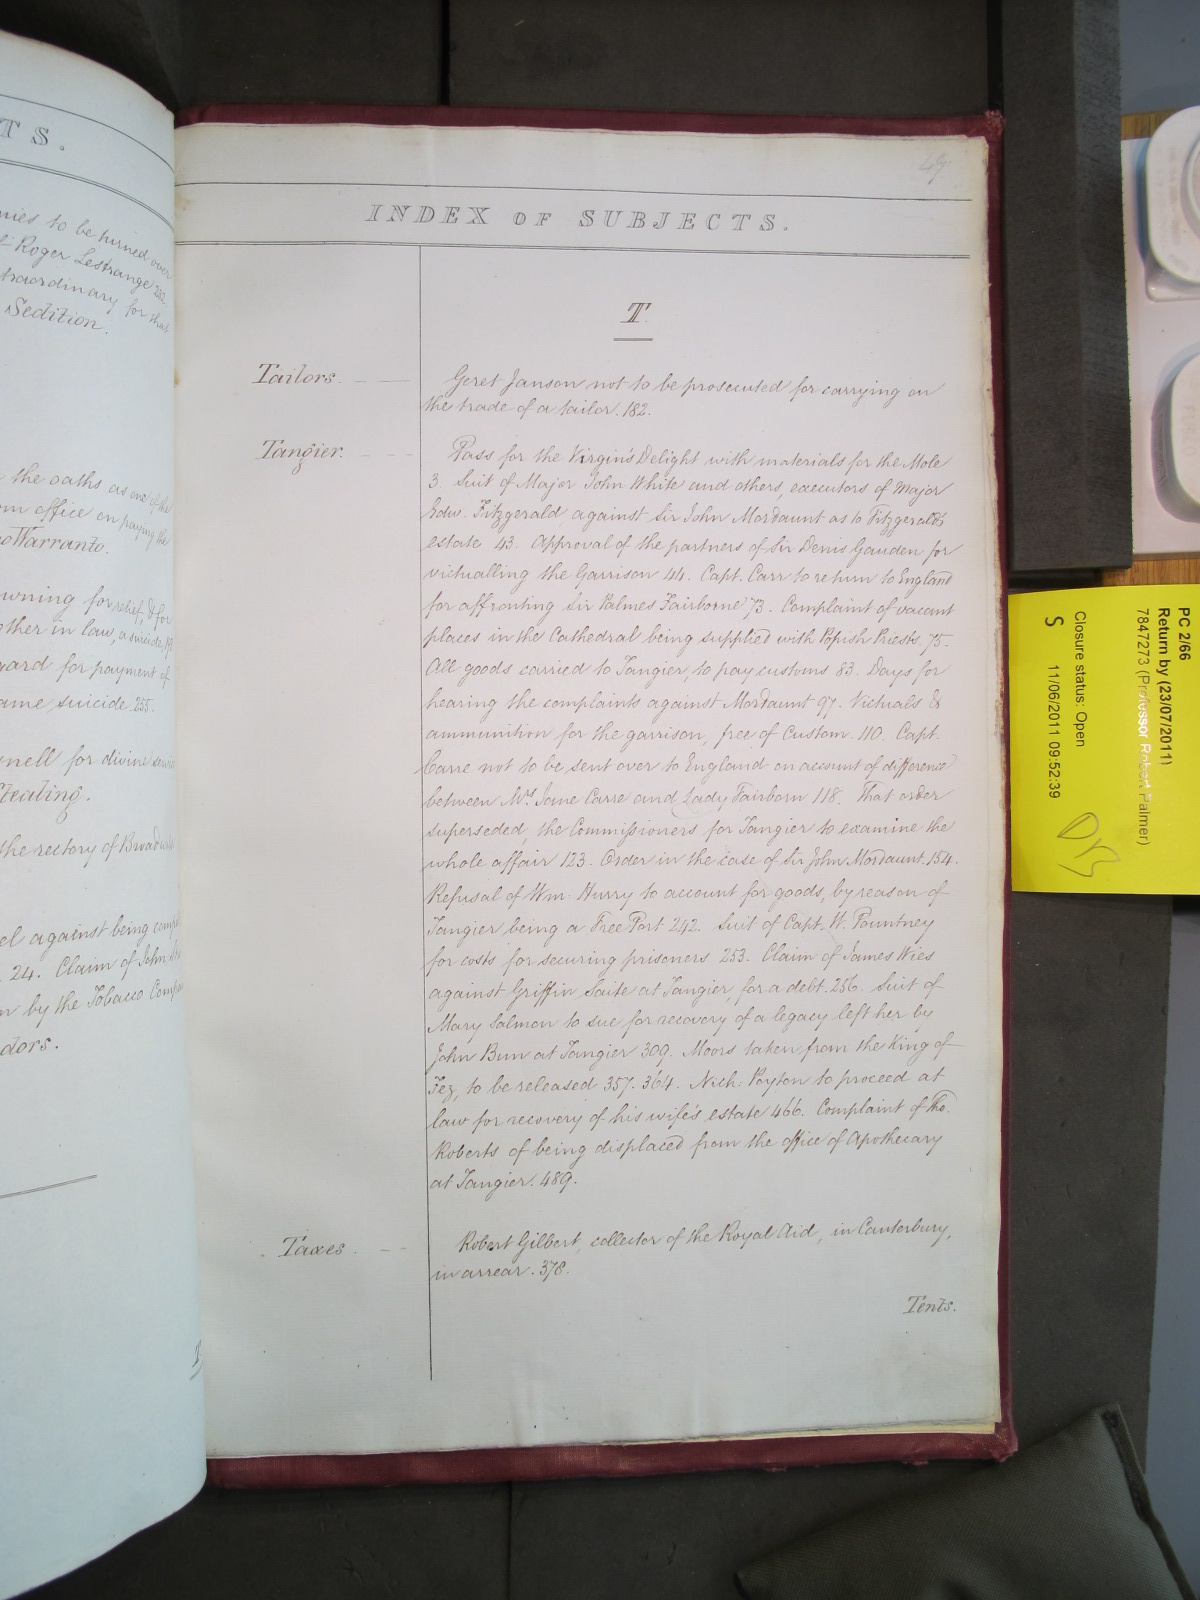 TS.
nies to be turned over
Roger Lestrange 252
traordinary for that
Sedition.
the oaths as one of the
om office on paying the
o Warranto.
wning for relief, & for
other in law, a suicide,
uard for payment of
ame suicide. 255.
nell for divine
tealing.
the rectory of
el against being
24. Claim of John
n by the Tobacco
dors.
47
INDEX OF SUBJECTS.
T.
Tailors.
Geret Janson not to be prosecuted for carrying on
the trade of a tailor. 182.
Tangier.
Pass for the Virgin's Delight with materials for the Mole
3. Suit of Major John White and others, executors of Major
Edw. Fitzgerald, against Sir John Mordaunt as to Fitzgerald's
estate 43. Approval of the partners of Sir Denis Gauden for
victualling the Garrison 44. Capt. Carr to return to England
for affronting Sir Palmes Fairborne 73. Complaint of vacant
places in the Cathedral being supplied with Popish Priests. 75.
All goods carried to Tangier, to pay customs 83. Days for
hearing the complaints against Mordaunt 97. Victuals &
ammunition for the garrison, free of Custom. 110. Capt.
Carre not to be sent over to England on account of difference
between Mrs Jane Carre and Lady Fairborn 118. That order
superseded, the Commissioners for Tangier to examine the
whole affair 123. Order in the case of Sir John Mordaunt. 154.
Refusal of Wm. Hurry to account for goods, by reason of
Tangier being a Free Port 242. Suit of Capt. W. Pountney
for costs for securing prisoners 253. Claim of James Wies
against Griffin Saite at Tangier, for a debt. 256. Suit of
Mary Salmon to sue for recovery of a legacy left her by
John Bun at Tangier 309. Moors taken from the King of
Fez, to be released 357. 364. Nich: Poyton to proceed at
law for recovery of his wife's estate 466. Complaint of Tho.
Roberts of being displaced from the office of Apothecary
at Tangier. 489.
Taxes
Robert Gilbert, collector of the Royal Aid, in Canterbury,
in arrear. 378.
Tents.
PC 2/66
Return by (23/07/2011)
7847273 (Professor Robert Palmer)
Closure status: Open
S 11/06/2011 09:52:39
DB